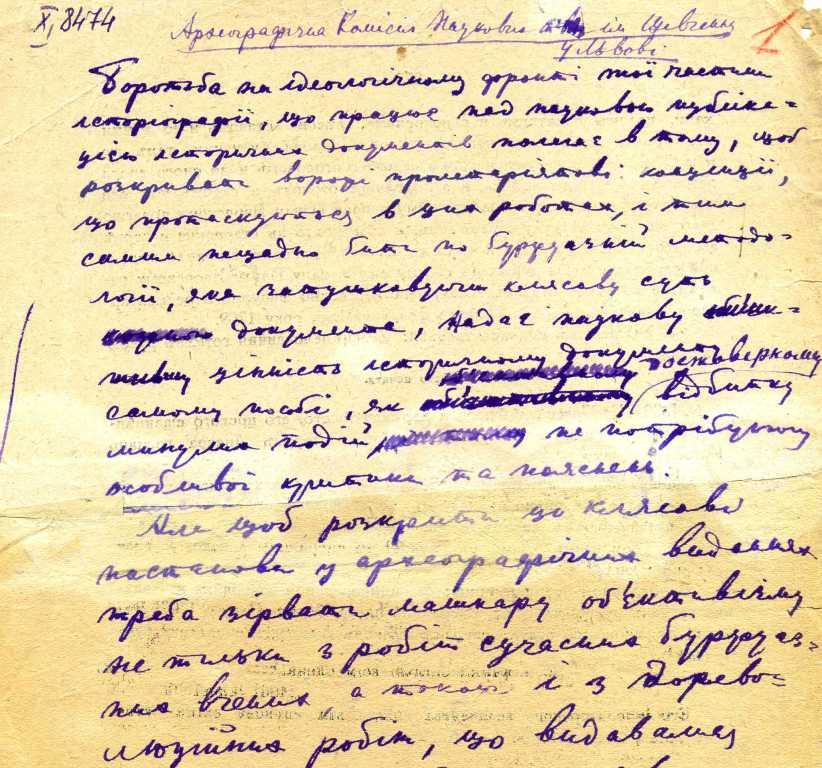 X, 8474
1
Археографічна Комісія Наукового т-ва ім Шевченка
у Львові
Боротьба на ідеологічному фронті тої частини
історіографії, що працює над науковою публіка-
цією історичних документів полягає в тому, щоб
розкривати ворожі пролетаріятові концепції,
що протаскуються в цих роботах, і тим
самим нещадно бити по буржуазній методо-
логії, яка затушковуючи клясову суть
документа, надає наукову
цінність історичному документу
достовірному
самому по собі, як відбитку
минулих подій не потрібуючому
особливої критики та пояснень.
Але щоб розкрити цю клясову
настанову у археографічних виданнях
треба зірвати машкару об'єктивізму
не тільки з робіт сучасних буржуаз-
них вчених, а також і з дорево-
люційних робіт, що видавалися